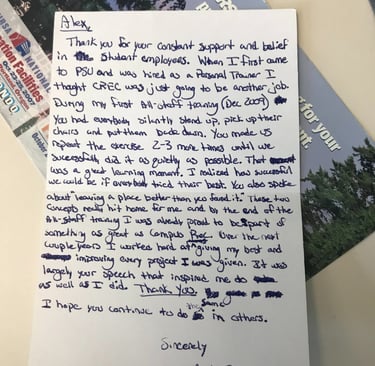 Alex,
Thank you for your constant support and belief
in student employees. When I first came
to PSU and was hired as a Personal Trainer I
thought CREC was just going to be another job.
During my first All-staff training (Dec 2009)
You had everybody silently stand up, pick up their
chairs and put them back down. You made us
repeat the exercise 2-3 more times until we
successfully did it as quietly as possible. That
was a great learning moment. I realized how successful
we could be if everybody tried their best. You also spoke
about "leaving a place better than you found it." These two
concepts really hit home for me and by the end of the
All-staff training I was already proud to be a part of
something as great as Campus Rec. Over the last
couple years I worked hard at giving my best and
improving every project I was given. It was
largely your speech that inspired me do
as well as I did. Thank You.
I hope you continue to do the same in others.
Sincerely
NATIONAL
Facilities
October
for your